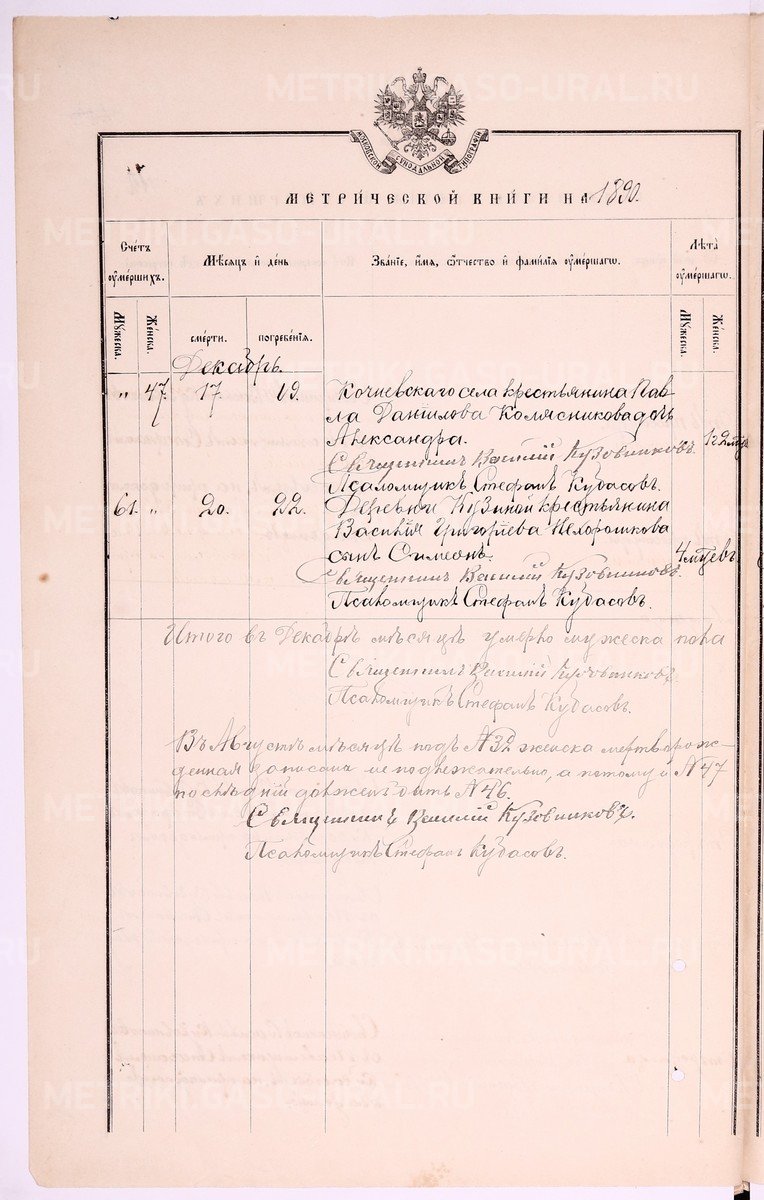 METRIKI.GASO-URAL.RU
МОСКОВСКОЙ СѴНОДАЛЬНОЙ ТИПОГРАФІИ
МЕТРИ́ЧЕСКОЙ КНИ́ГИ НА 1890.
Сче́тъ ᲂу҆ме́ршихъ.
Мѣ́сяцъ и҆ де́нь
Зва́нїе, и҆́мѧ, ѻ҆́тчество и҆ фами́лїѧ ᲂу҆ме́ршагѡ.
Лѣ́та ᲂу҆ме́ршагѡ.
Мꙋ́жеска.
Же́нска.
сме́рти.
погребе́нїѧ.
Мꙋ́жеска.
Же́нска.
Декабрь.
„ 47. 17. 19. Кочневскаго села крестьянина Пав-
ла Данїилова Колясникова дочь
Александра.
Священникъ Василій Кузовниковъ.
Псаломщикъ Стефанъ Кубасовъ.
61. „ 20. 22. Деревни Кузиной крестьянина
Василїя Григорїева Нехорошкова
сынъ Симеонъ. 4 мцевъ
Священникъ Василій Кузовниковъ.
Псаломщикъ Стефанъ Кубасовъ.
Итого въ Декабрѣ мѣсяцѣ умерло мужеска пола
Священникъ Василій Кузовниковъ
Псаломщикъ Стефанъ Кубасовъ.
Въ Августѣ мѣсяцѣ подъ № 32 женска мертворож-
денная записана не подлежательно, а потому и № 47
послѣдній долженъ быть № 46.
Священникъ Василій Кузовниковъ.
Псаломщикъ Стефанъ Кубасовъ.